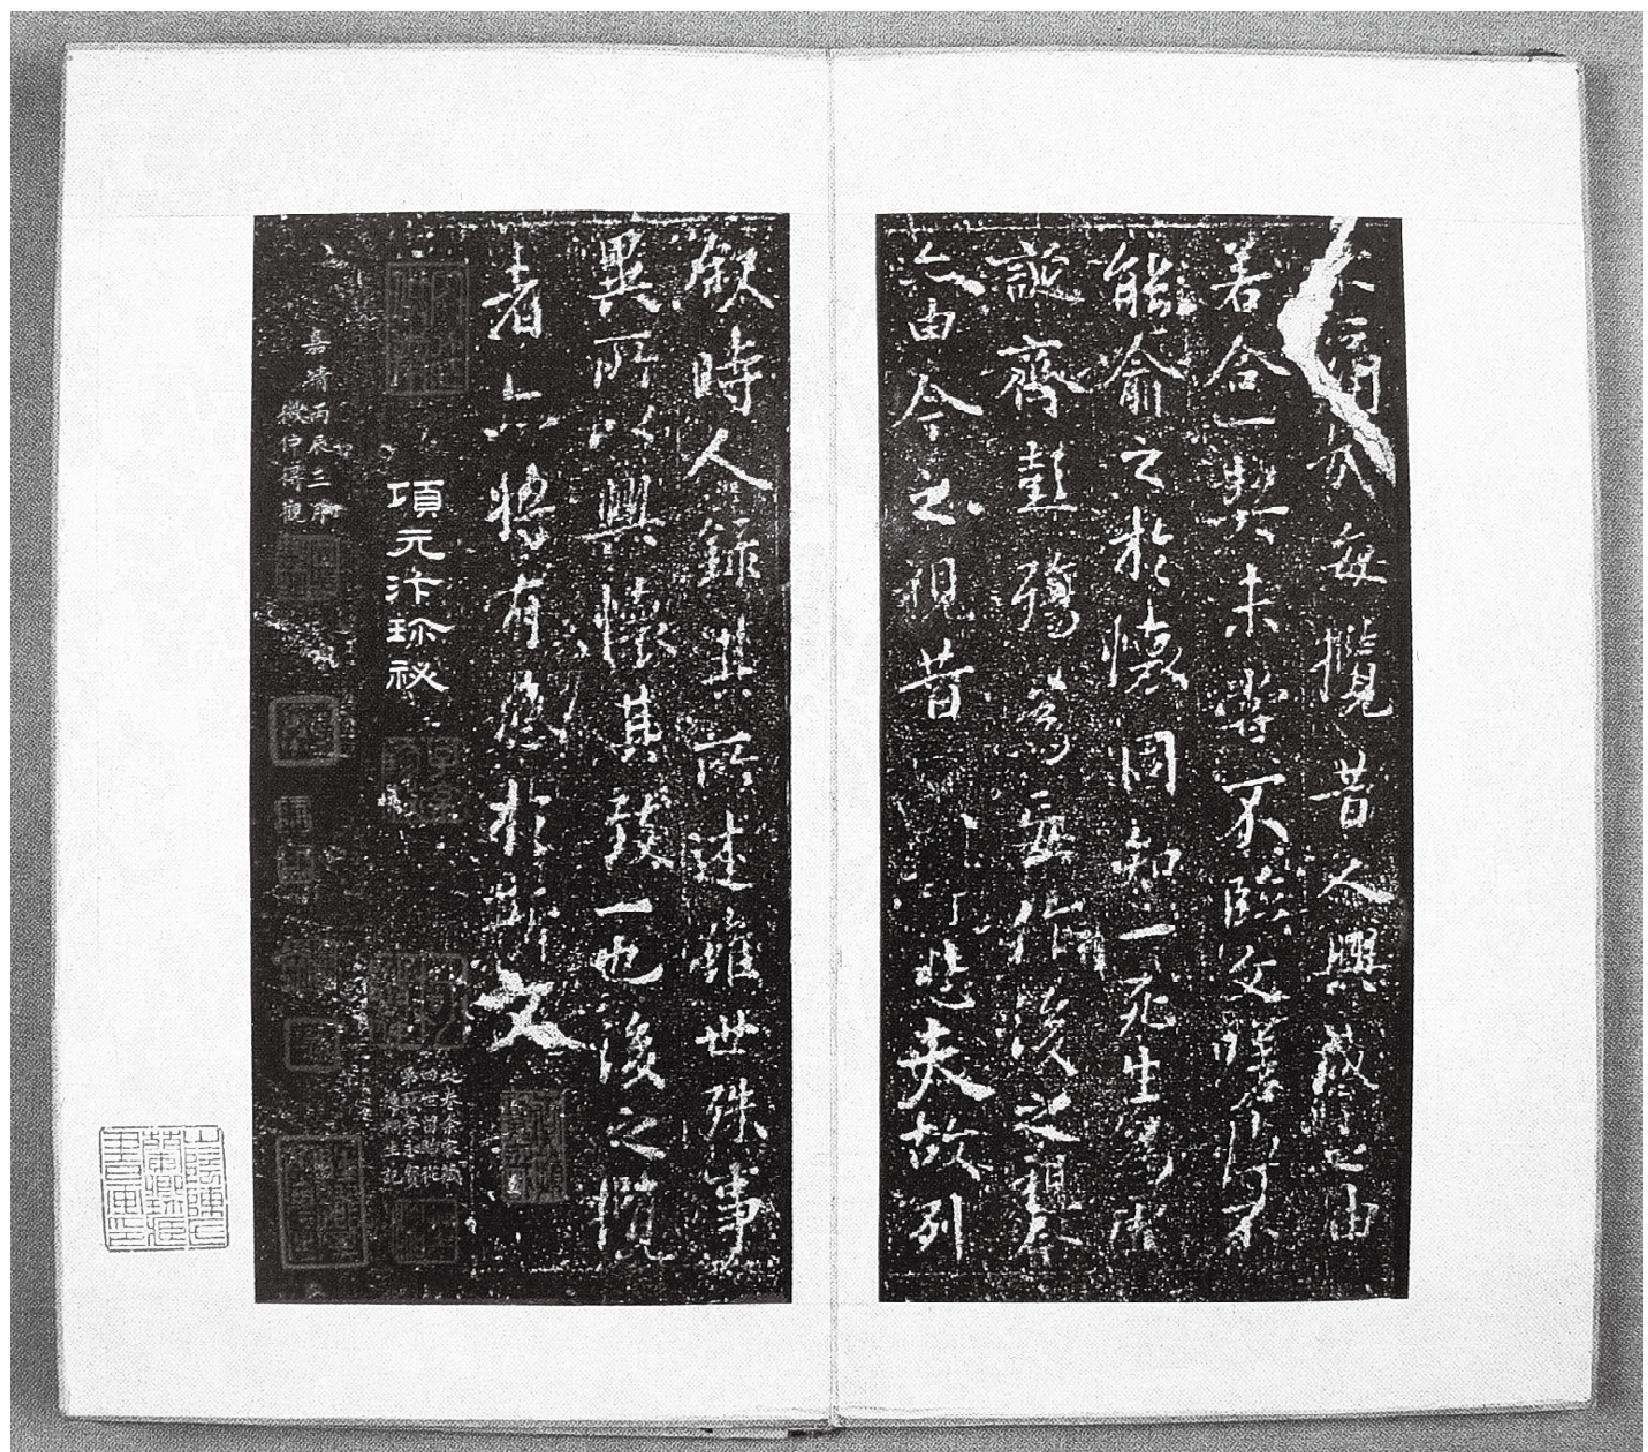 不痛哉每攬昔人興感之由
若合一契未嘗不臨文嗟悼不
能喻之於懷固知一死生為虛
誕齊彭殤為妄作後之視今
亦由今之視昔 悲夫故列
敘時人錄其所述雖世殊事
異所以興懷其致一也後之攬
者亦將有感於斯文
項元汴珍祕
嘉靖丙辰三
徵仲 觀